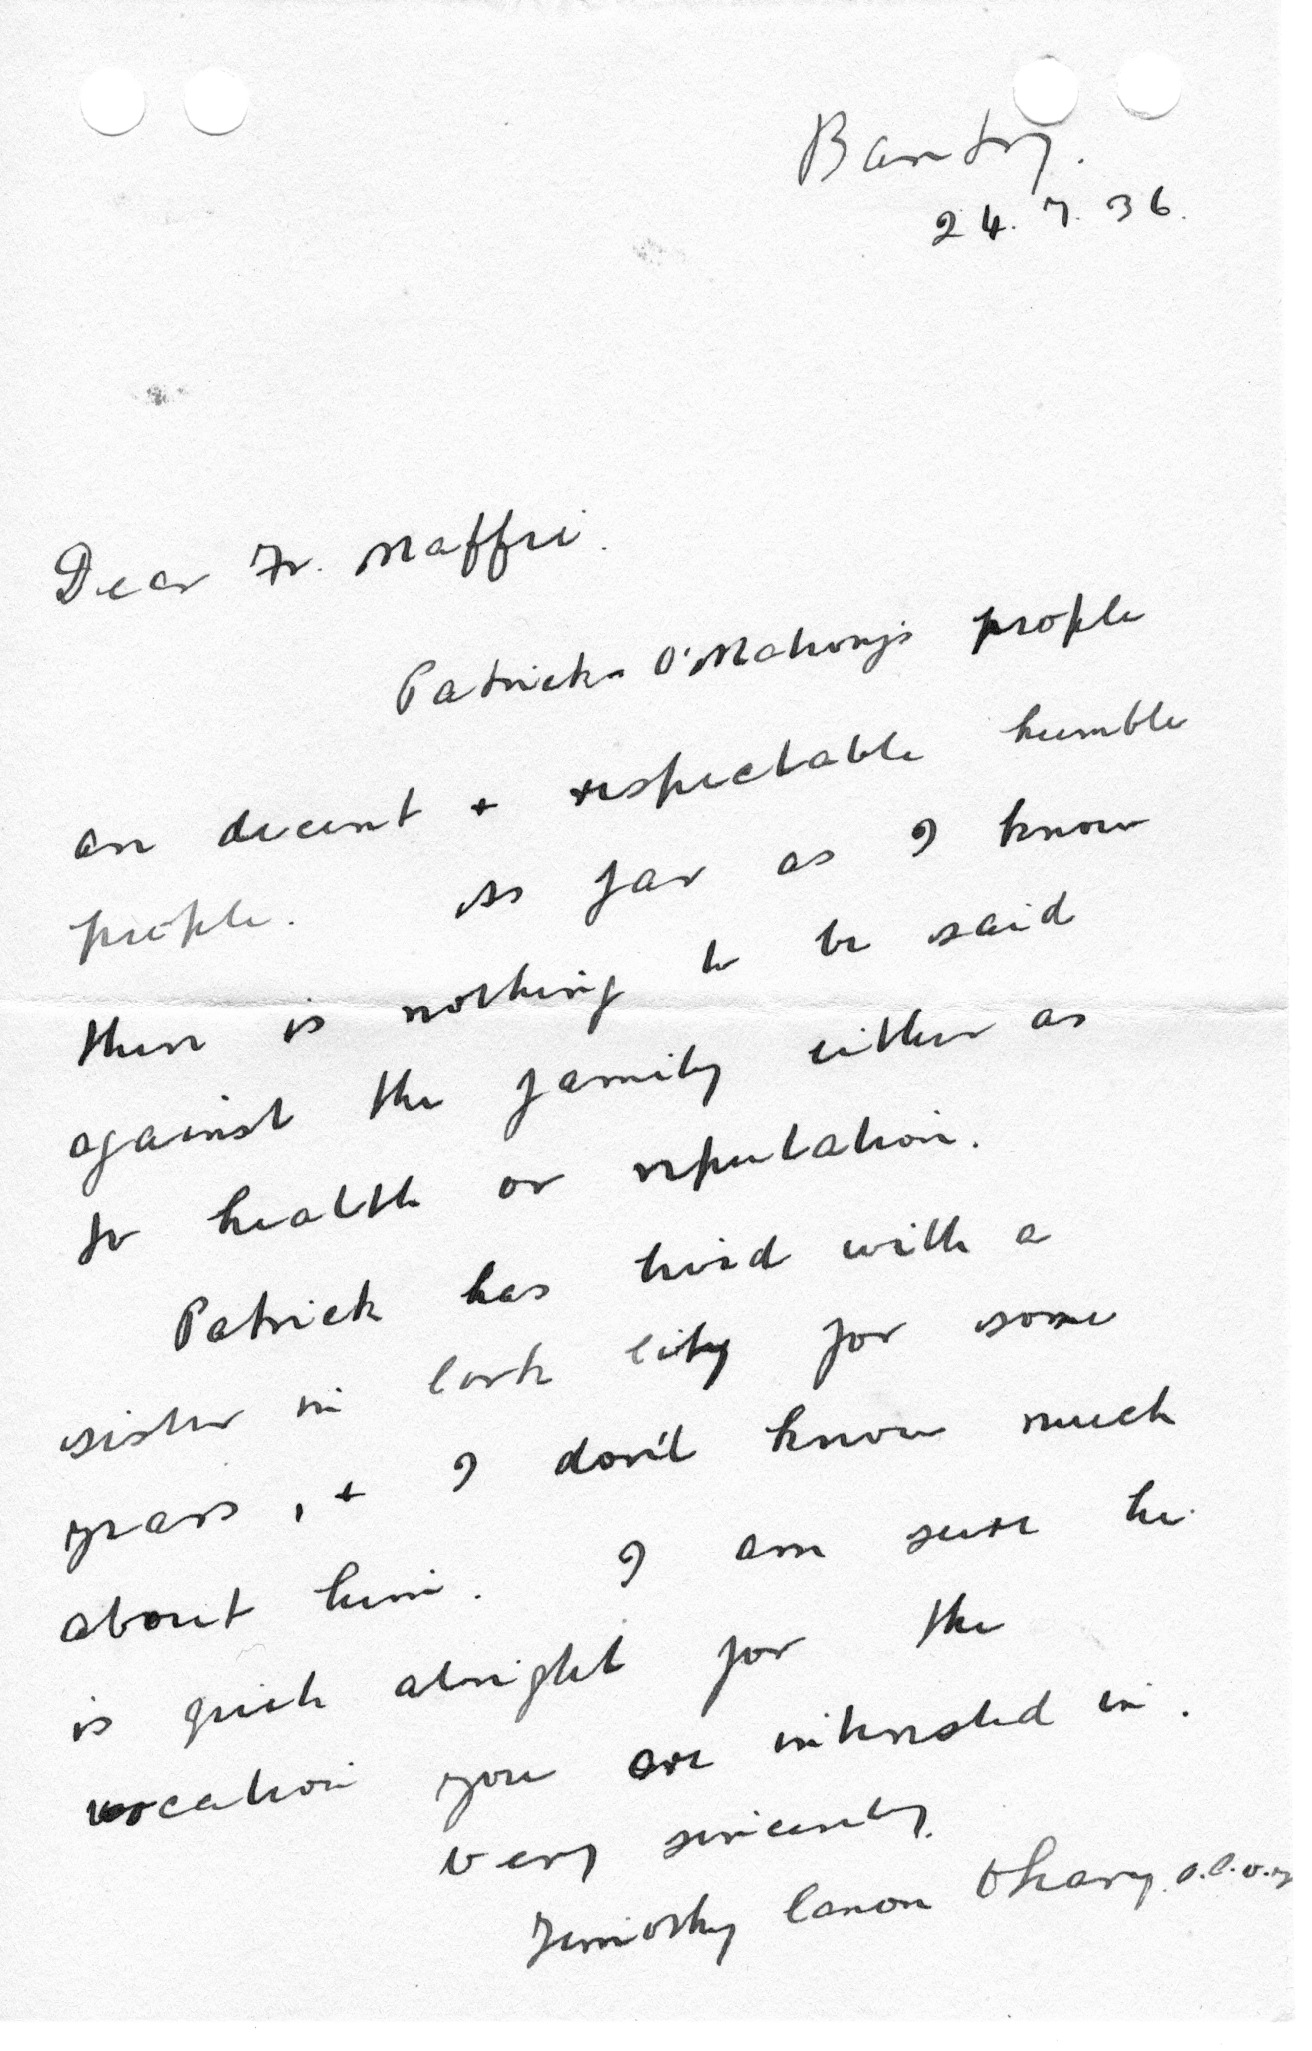 Bantry.
24. 7. 36.
Dear Fr. Maffei.
Patrick O'Mahony's people
are decent + respectable humble
people. As far as I know
there is nothing to be said
against the family either as
to health or reputation.
Patrick has lived with a
sister in Cork City for some
years, + I don't know much
about him. I am sure he
is quite alright for the
vocation you are interested in.
Very sincerely
Timothy Canon